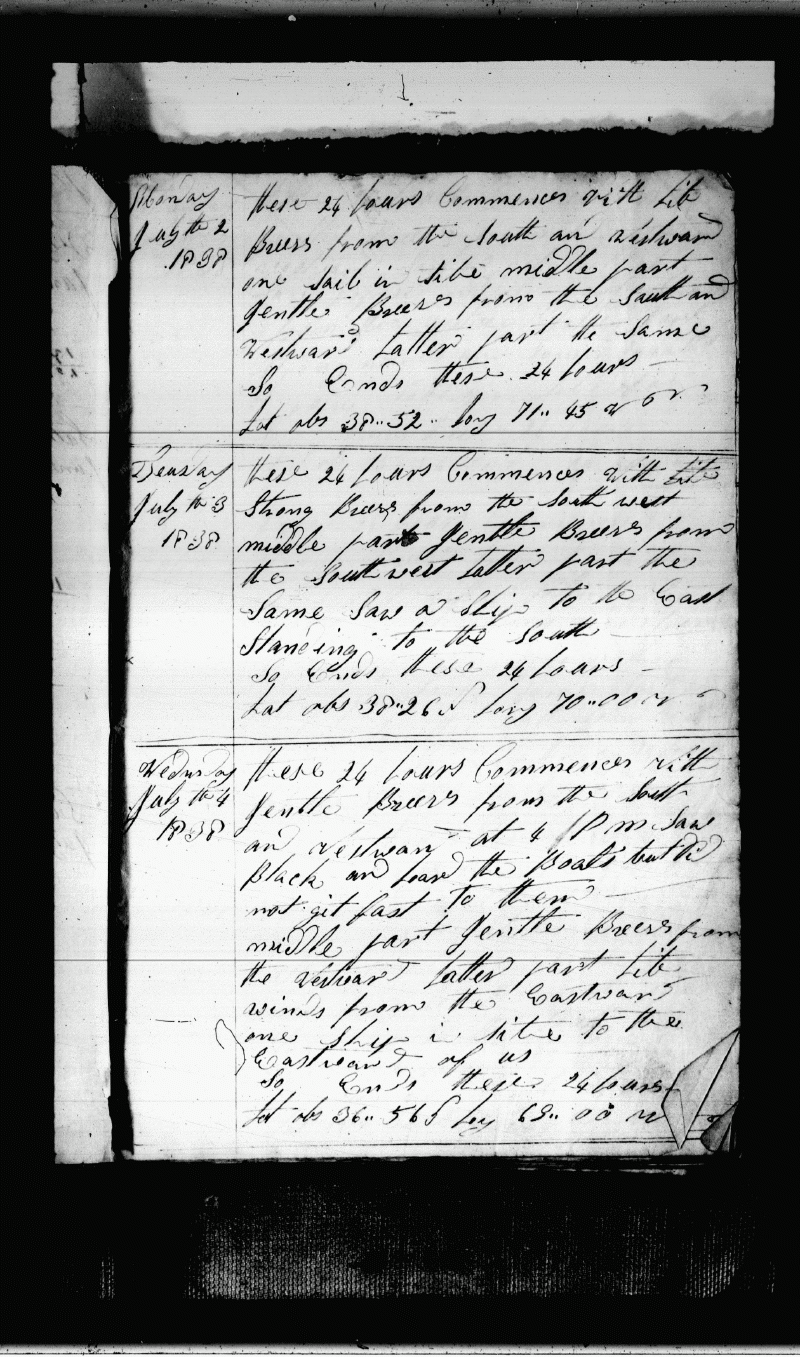 Monday
July th 2
1838
these 24 hours Commences with lite
Breezs from the South an westward
one Sail in Site middle part
Gentle Breezes from the South and
westward Latter part the Same
So Ends these 24 hours
Lat obs 38..52.. long 71..45
Teusday
July th 3
1838
these 24 hours Commences with lite
Strong Breezs from the South west
middle part Gentle Breezs from
the Southwest Latter part the
Same Saw a Ship to the East
Standing to the South
So Ends these 24 hours
Lat obs 38..26 S long 70..00 w
Wednsday
July th 4
1838
these 24 hours Commences with
Gentle Breezs from the South
and westward at 4 P m Saw
Black and loard the Boats but did
not git fast to them
middle part Gentle Breezes from
the westward latter part lite
winds from the Eastward
one Ship in Site to the
Eastward of us
So Ends these 24 hours
Lat obs 36..56 S long 68..00 w